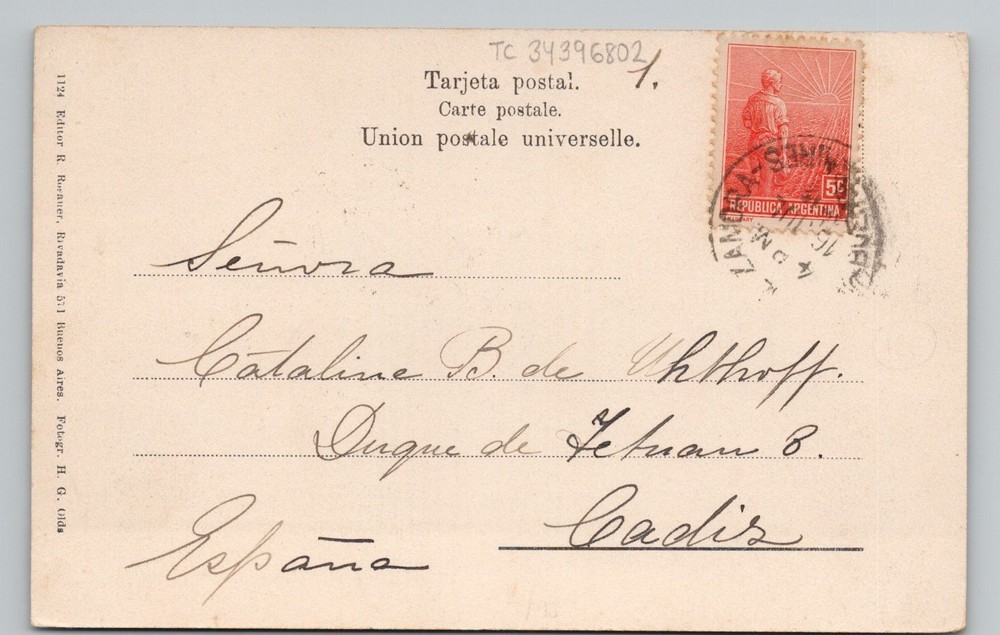 TC 34396802
1.
Tarjeta postal.
Carte postale.
Union postale universelle.
5c
REPUBLICA ARGENTINA
4 PM
16
Señora
Catalina B. de Uhthoff.
Duque de Tetuan 8.
Cadiz
España
1124 Editor R. Rosauer, Rivadavia 571 Buenos Aires. Fotogr. H. G. Olds